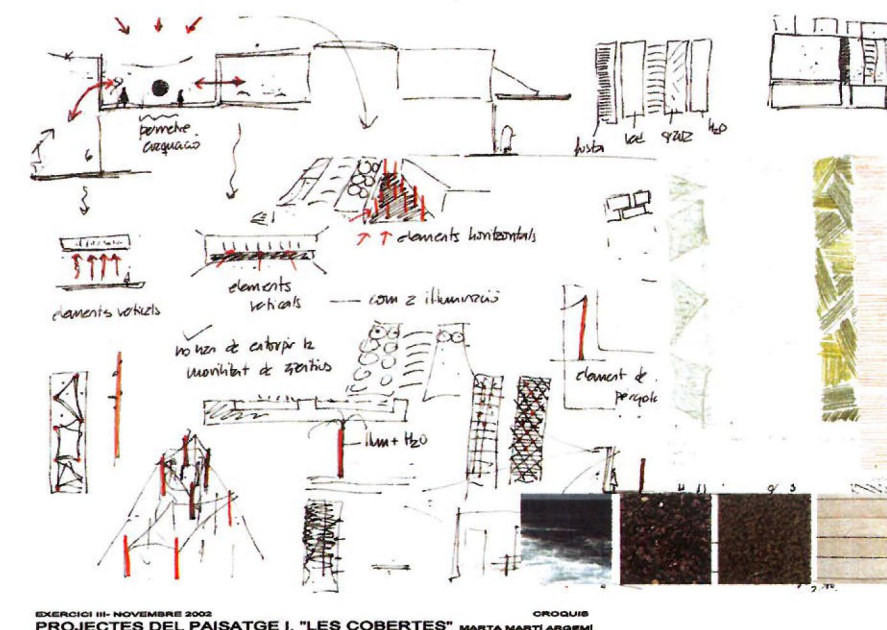 perímetre
fusta
H2O
elements horitzontals
elements verticals
elements
verticals
com a il·luminació
no han de entorpir la
movilitat de
element de
pergola
Ilum + H2O
EXERCICI III- NOVEMBRE 2002
CROQUIS
PROJECTES DEL PAISATGE I. "LES COBERTES" MARTA MARTÍ ARGEMÍ